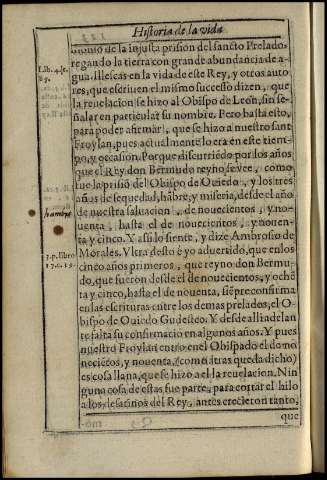 Historia de la vida
monio de la injusta prision del sancto Prelado,
regando la tierra con grande abundancia de a-
gua. Illescas en la vida de este Rey, y otros auto-
res, que escriuen el mismo successo dizen, que
la reuelacion se hizo al Obispo de Leon, sin se-
ñalar en particular su nombre. Pero basta esto,
para poder afirmar, que se hizo a nuestro sant
Froylan, pues actualmente lo era en este tiem-
po, y occasion. Porque discurriēdo por los años
que el Rey don Bermudo reyno, se vee, como
fue la prisiō del Obispo de Ouiedo, y los tres
años de sequedad, hābre, y miseria, desde el año
de nuestra saluacion, de nouecientos, y no-
uenta, hasta el de nouecientos, y nouen-
ta y cinco. Y assi lo siente, y dize Ambrosio de
Morales. Vltra desto è yo aduertido, que en los
cinco años primeros, que reyno don Bermu-
do, que fueron desde el de nouecientos, y ochē
ta y cinco, hasta el de nouenta, siēpre confirma
en las escrituras entre los demas prelados, el O-
bispo de Ouiedo Gudesteo. Y desde alli adelan
te falta su confirmaciō en algunos años. Y pues
nuestro Froylan entro en el Obispado el de no
neciētos, y nouenta, (como atras queda dicho)
es cosa llana, que se hizo a el la reuelacion. Nin
guna cosa de estas fue parte, para cortar el hilo
a los desatinos del Rey, antes crecieron tanto,
que
Lib. 4. c.
hambre
3. p. libro
17. c. 13.